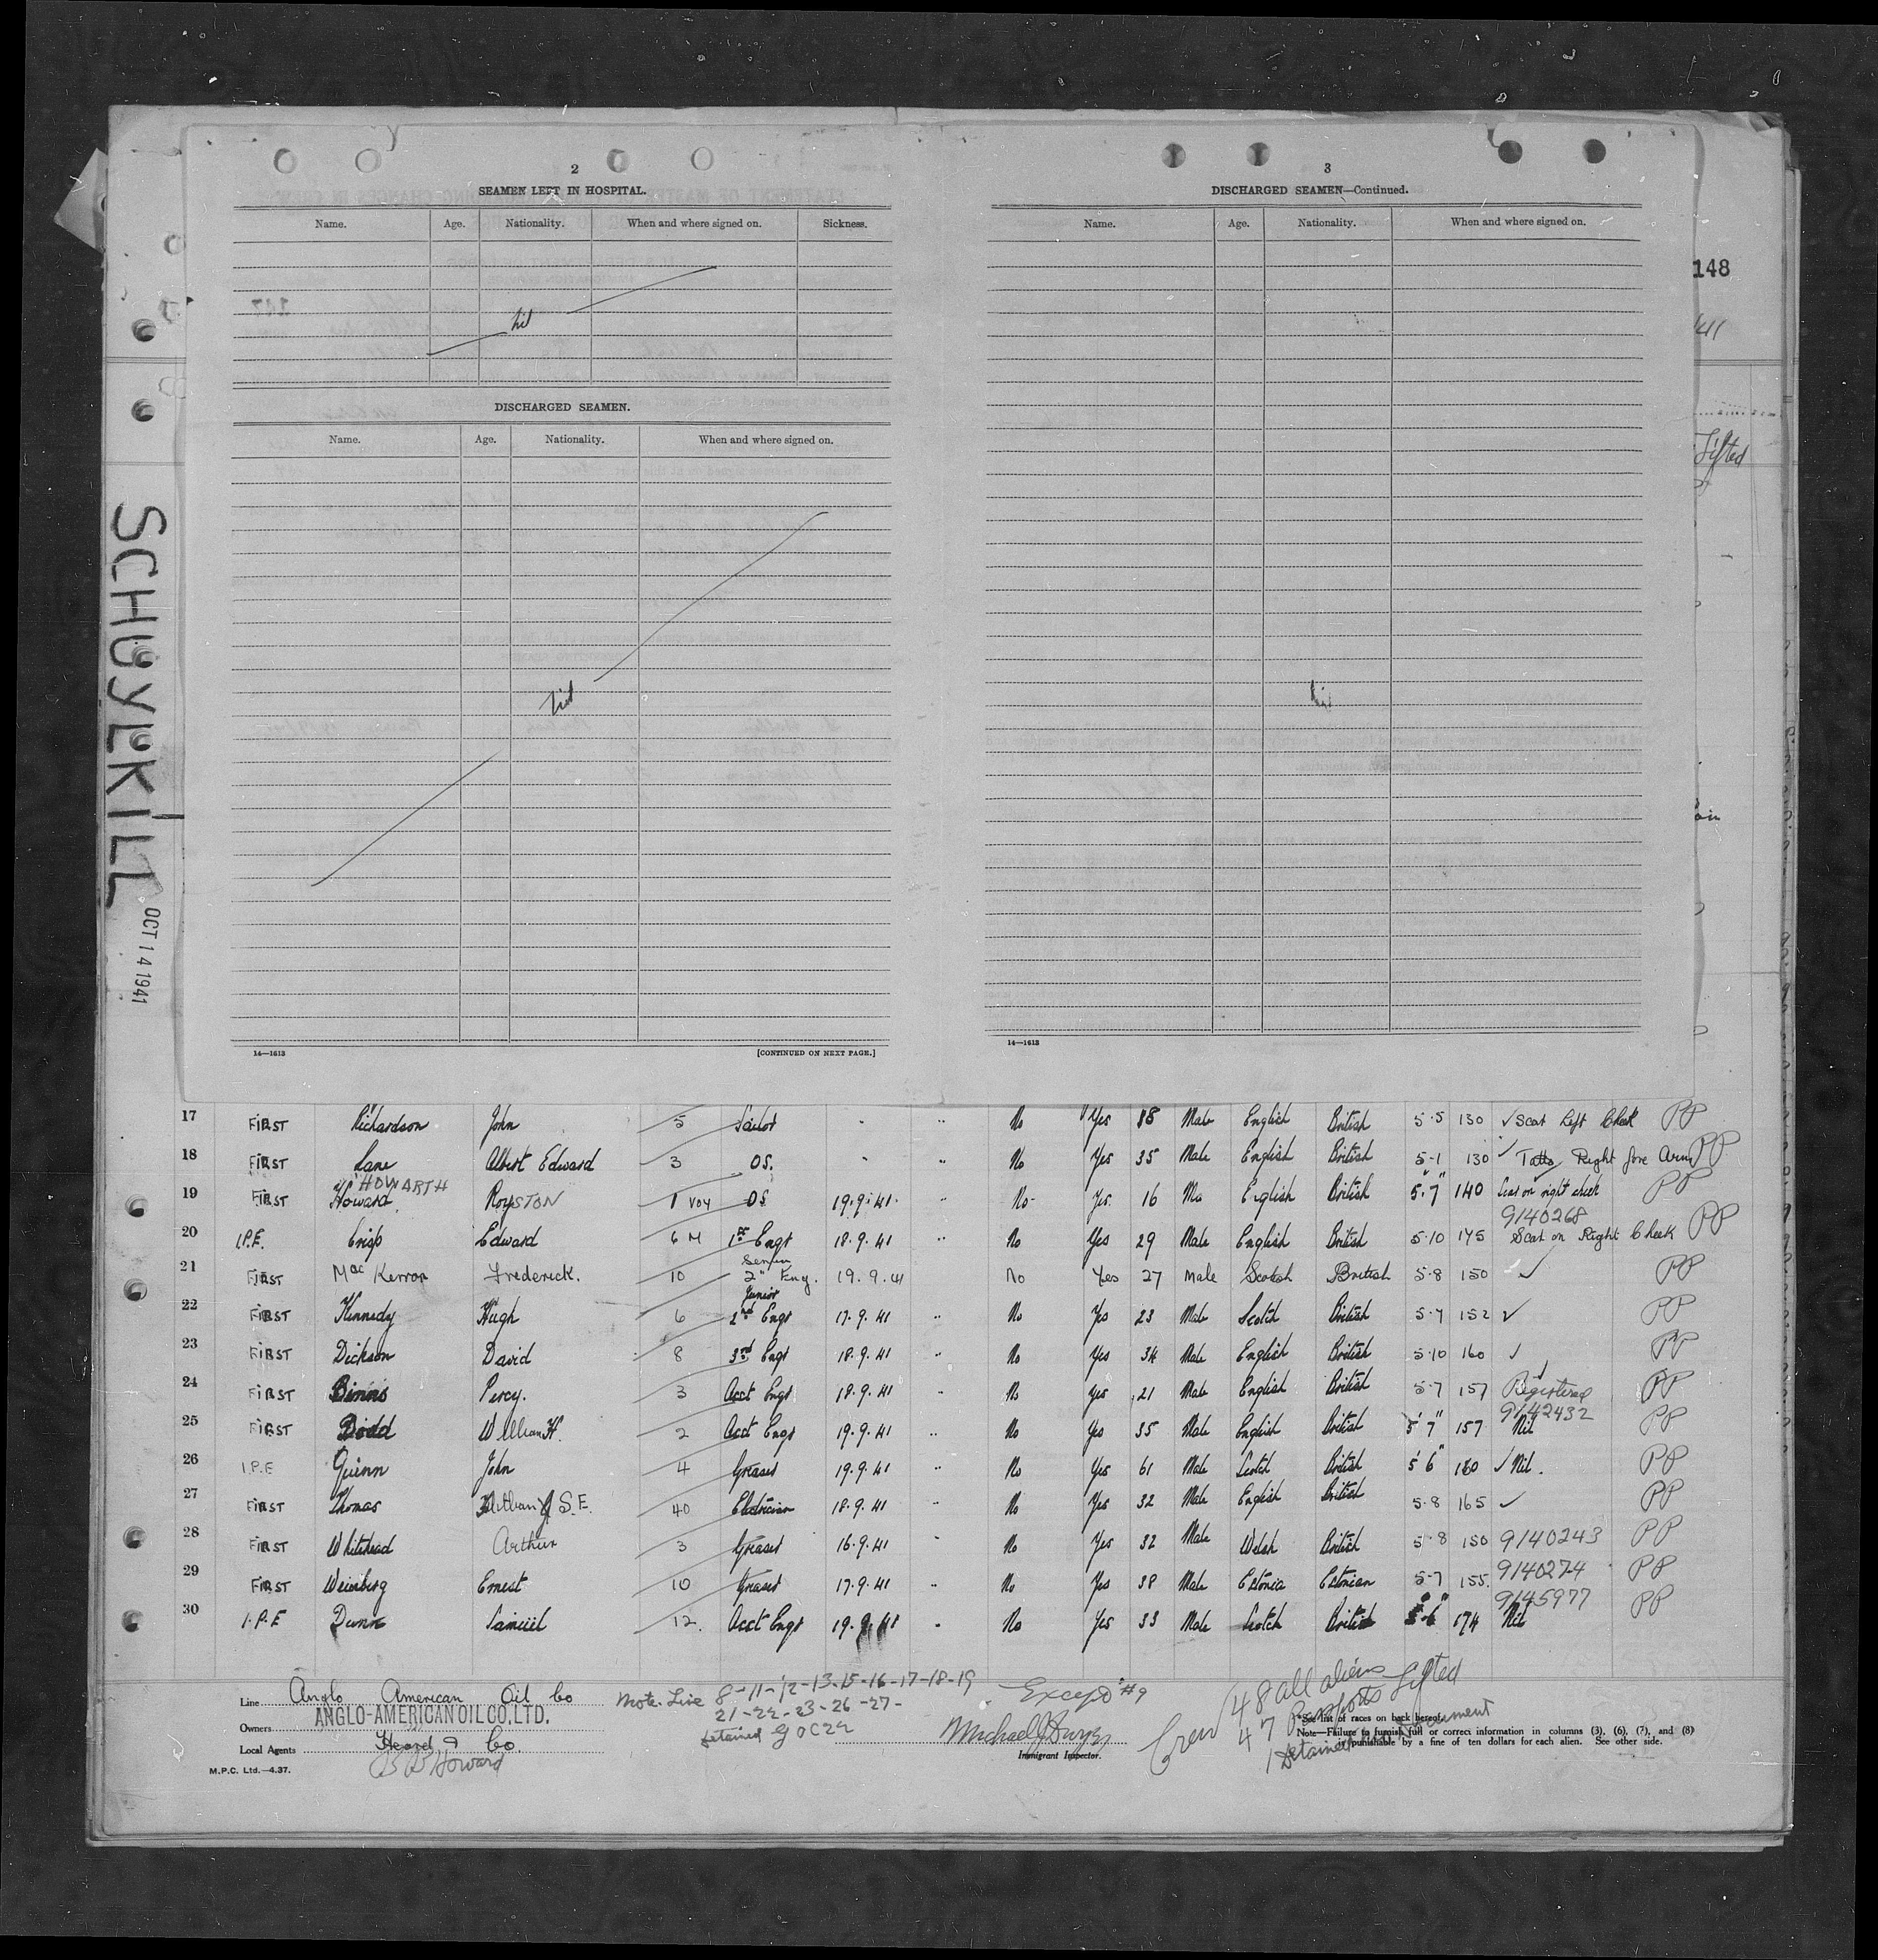 2
SEAMEN LEFT IN HOSPITAL.
Name. Age. Nationality. When and where signed on. Sickness.
nil
DISCHARGED SEAMEN.
Name. Age. Nationality. When and where signed on.
nil
14—1613 [CONTINUED ON NEXT PAGE.]
3
DISCHARGED SEAMEN—Continued.
Name. Age. Nationality. When and where signed on.
nil
14—1613
148
Lifted
SCHUYLKILL
OCT 14 1941
17 FIRST Richardson John 5 Sailor " " No Yes 18 Male English British 5·5 130 ✓ Scar Left Cheek PP
18 FIRST Lane Albert Edward 3 OS. " " No Yes 35 Male English British 5-1 130 ✓ Tatto Right fore Arm PP
HOWARTH
19 FIRST Howard Royston 1 voy OS 19.9.41 No Yes 16 Ma English British 5'·7" 140 Scar on right cheek PP
9140268
20 I.P.E. Crisp Edward 6 M 1st Engr 18·9·41 " No Yes 29 Male English British 5·10 175 Scar on Right Cheek PP
Senior
21 FIRST Mac Kerron Frederick. 10 2" Eng. 19.9.41 No Yes 27 Male Scotish British 5·8 150 ✓ PP
Junior
22 FIRST Kennedy Hugh 6 2nd Engr 17·9·41 " No Yes 23 Male Scotch British 5·7 152 ✓ PP
23 FIRST Dickson David 8 3rd Engr 18·9·41 " No Yes 34 Male English British 5·10 160 ✓ PP
24 FIRST Binns Percy. 3 Asst Engr 18·9·41 " No Yes 21 Male English British 5·7 157 Registered PP
9142432
25 FIRST Dodd William H. 2 Asst Engr 19·9·41 " No Yes 35 Male English British 5'7" 157 Nil PP
26 I.P.E Quinn John 4 Greaser 19·9·41 " No Yes 61 Male Scotch British 5'6" 160 ✓ Nil. PP
27 FIRST Thomas S.E. 40 Electrician 18·9·41 " No Yes 32 Male English British 5·8 165 ✓ PP
28 FIRST Whitehead Arthur 3 Greaser 16·9·41 " No Yes 32 Male Welsh British 5·8 150 9140243 PP
29 FIRST Weinberg Ernest 10 Greaser 17·9·41 " No Yes 38 Male Estonia Estonian 5-7 155. 9140274 PP
9145977
30 I.P.E Dunn Samuel 12. Asst Engr 19.9.41 " No Yes 33 Male Scotch British 5·6 174 Nil PP
Line Anglo American Oil Co
ANGLO-AMERICAN OIL CO. LTD.
Owners
Local Agents Heard & Co.
Howard
M.P.C. Ltd.—4.37.
Note. Line 8-11-12-13-15-16-17-18-19
21-22-23-26-27-
Detained
Except #9
Immigrant Inspector.
Crew 48 all aliens
47 Passports Lifted
1 Detained Document
*See list of races on back hereof.
Note—Failure to furnish full or correct information in columns (3), (6), (7), and (8)
is punishable by a fine of ten dollars for each alien. See other side.